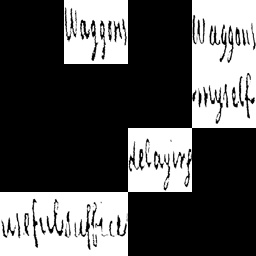 Waggons Waggons
myself
delaying
useful suffice